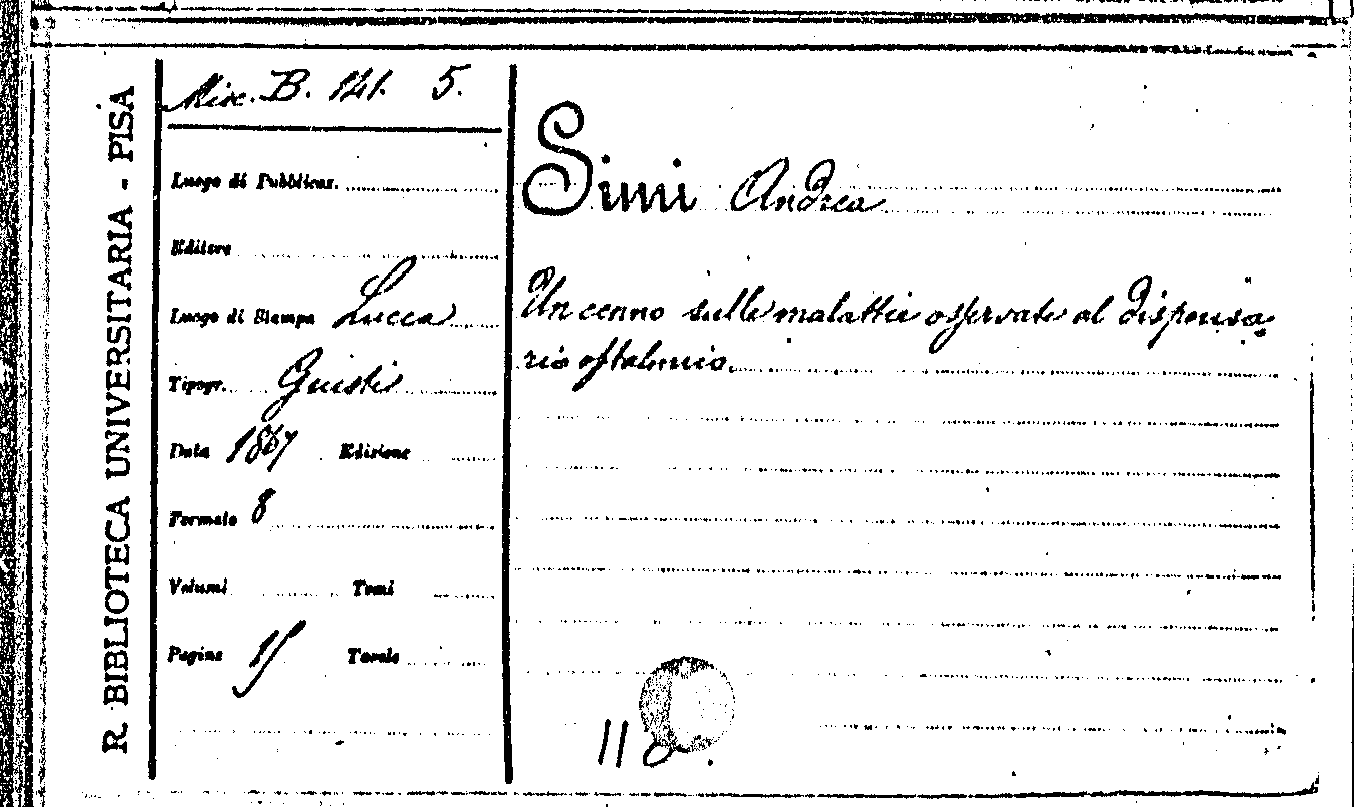 R. BIBLIOTECA UNIVERSITARIA - PISA
Misc. B. 141. 5.
Luogo di Pubblicaz.
Editore
Luogo di Stampa Lucca
Tipogr. Giusti
Data 1867 Edizione
Formato 8
Volumi Tomi
Pagine 15 Tavole
Simi Andrea
Un cenno sulle malattie osservate al dispensa-
rio oftalmico.